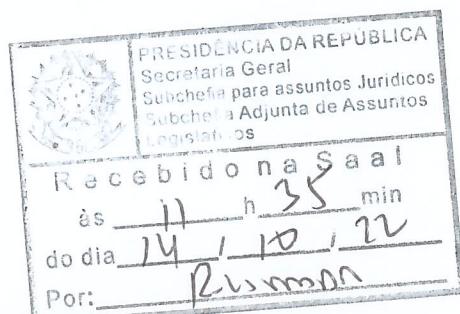 PRESIDÊNCIA DA REPÚBLICA
Secretaria Geral
Subchefia para assuntos Jurídicos
Subchefia Adjunta de Assuntos
Legislativos
Recebido na Saal
às 11 h 35 min
do dia 14 / 10 / 22
Por: